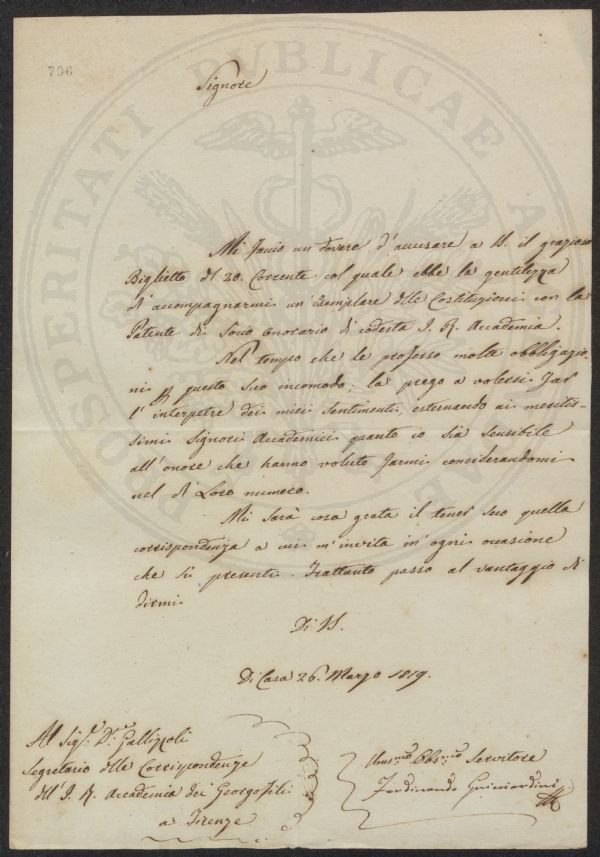 796
Signore
Mi faccio un dovere d'accusare a V.S. il grazioso
Biglietto del 20. Corrente col quale ebbe la gentilezza
di accompagnarmi un' Esemplare delle Costituzioni con la
Patente di Socio Onorario di codesta I. R. Accademia.
Nel tempo che le professo molte obbligazio-
ni per questo suo incomodo; la prego a volersi far
l'interpetre dei miei Sentimenti, esternando ai meritis-
simi Signori Accademici quanto io sia sensibile
all'onore che hanno voluto farmi considerandomi
nel di Loro numero.
Mi Sarà cosa grata il tener seco quella
corrispondenza a cui m'invita in' ogni occasione
che si presenti. Frattanto passo al vantaggio di
dirmi
Di V.S.
Di Casa 26. Marzo 1819.
Al Sig.r D.r Gallizioli
Segretario delle Corrispondenze
dell' I. R. Accademia dei Georgofili
a Firenze
Obbs.mo Servitore
Ferdinando Guicciardini
PROSPERITATI PUBLICAE